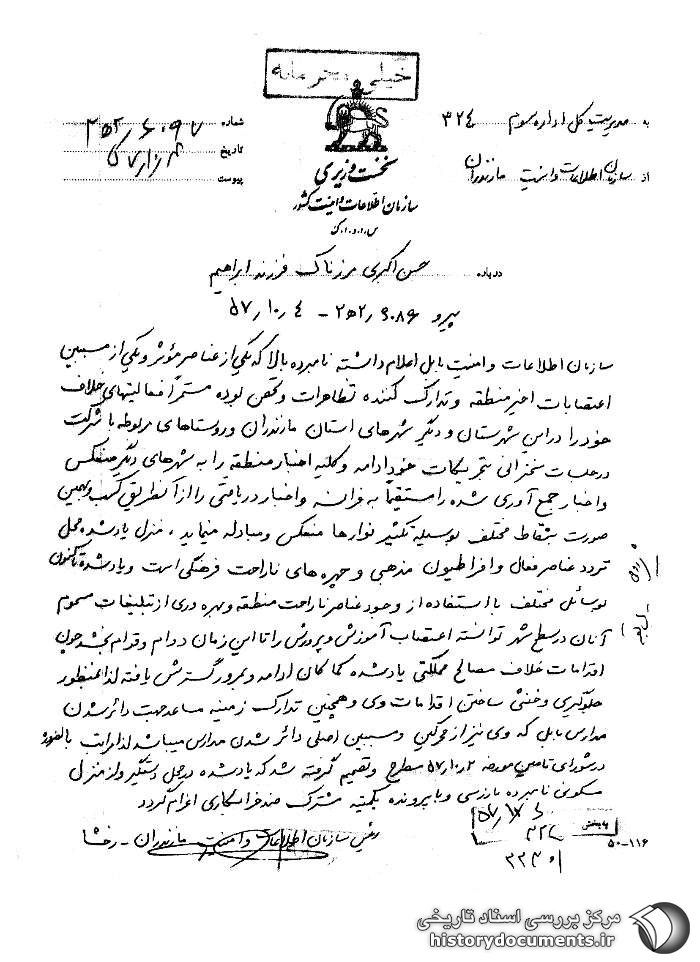 خیلی محرمانه
به مدیریت کل اداره سوم ۳۲۴
از سازمان اطلاعات و امنیت مازندران
شماره ۲۵۲٫۶۰۹۷
تاریخ
پیوست
نخست وزیری
سازمان اطلاعات و امنیت کشور
س.ا.و.ا.ک
درباره حسن اکبری مرزناک فرزند ابراهیم
پیرو ۲۵۲٫۶۰۸۶ - ۵۷٫۱۰٫۴
سازمان اطلاعات و امنیت بابل اعلام داشته نامبرده بالا که یکی از عناصر مؤثر و یکی از مسببین
اعتصابات اخیر منطقه و تدارک کننده تظاهرات و تحصن بوده مستمراً فعالیتهای خلاف
خود را در این شهرستان و دیگر شهرهای استان مازندران و روستاهای مربوطه با شرکت
در جلسات سخنرانی تحریکات خود ادامه و کلیه اخبار منطقه را به شهرهای دیگر منعکس
و اخبار جمع آوری شده را مستقیماً به فرانسه و اخبار دریافتی را از آنطریق کسب و بهمین
صورت به نقاط مختلف بوسیله تکثیر نوارها منعکس و مبادله مینماید، منزل یاد شده محل
تردد عناصر فعال و افراطیون مذهبی و چهره های ناراحت فرهنگی است و یاد شده تاکنون
بوسائل مختلف با استفاده از وجود عناصر ناراحت منطقه و بهره وری از تبلیغات مسموم
آنان در سطح شهر توانسته اعتصاب آموزش و پرورش را تا این زمان دوام و قوام بخشد چون
اقدامات خلاف مصالح مملکتی یاد شده کماکان ادامه و بمرور گسترش یافته لذا بمنظور
جلوگیری و خنثی ساختن اقدامات وی و همچنین تدارک زمینه مساعد جهت دائر شدن
مدارس بابل که وی نیز از محرکین و مسببین اصلی دائر شدن مدارس میباشد لذا مراتب بالفور
در شورای تامین مورخه ۵۷٫۱۰٫۲ مطرح و تصمیم گرفته شد که یاد شده در محل دستگیر و از منزل
مسکونی نامبرده بازرسی و با پرونده بکمیته مشترک ضد خرابکاری اعزام گردد
رئیس سازمان اطلاعات و امنیت مازندران - رخشا
۳۲۴
۵۰-۱۱۶
مرکز بررسی اسناد تاریخی
historydocuments.ir